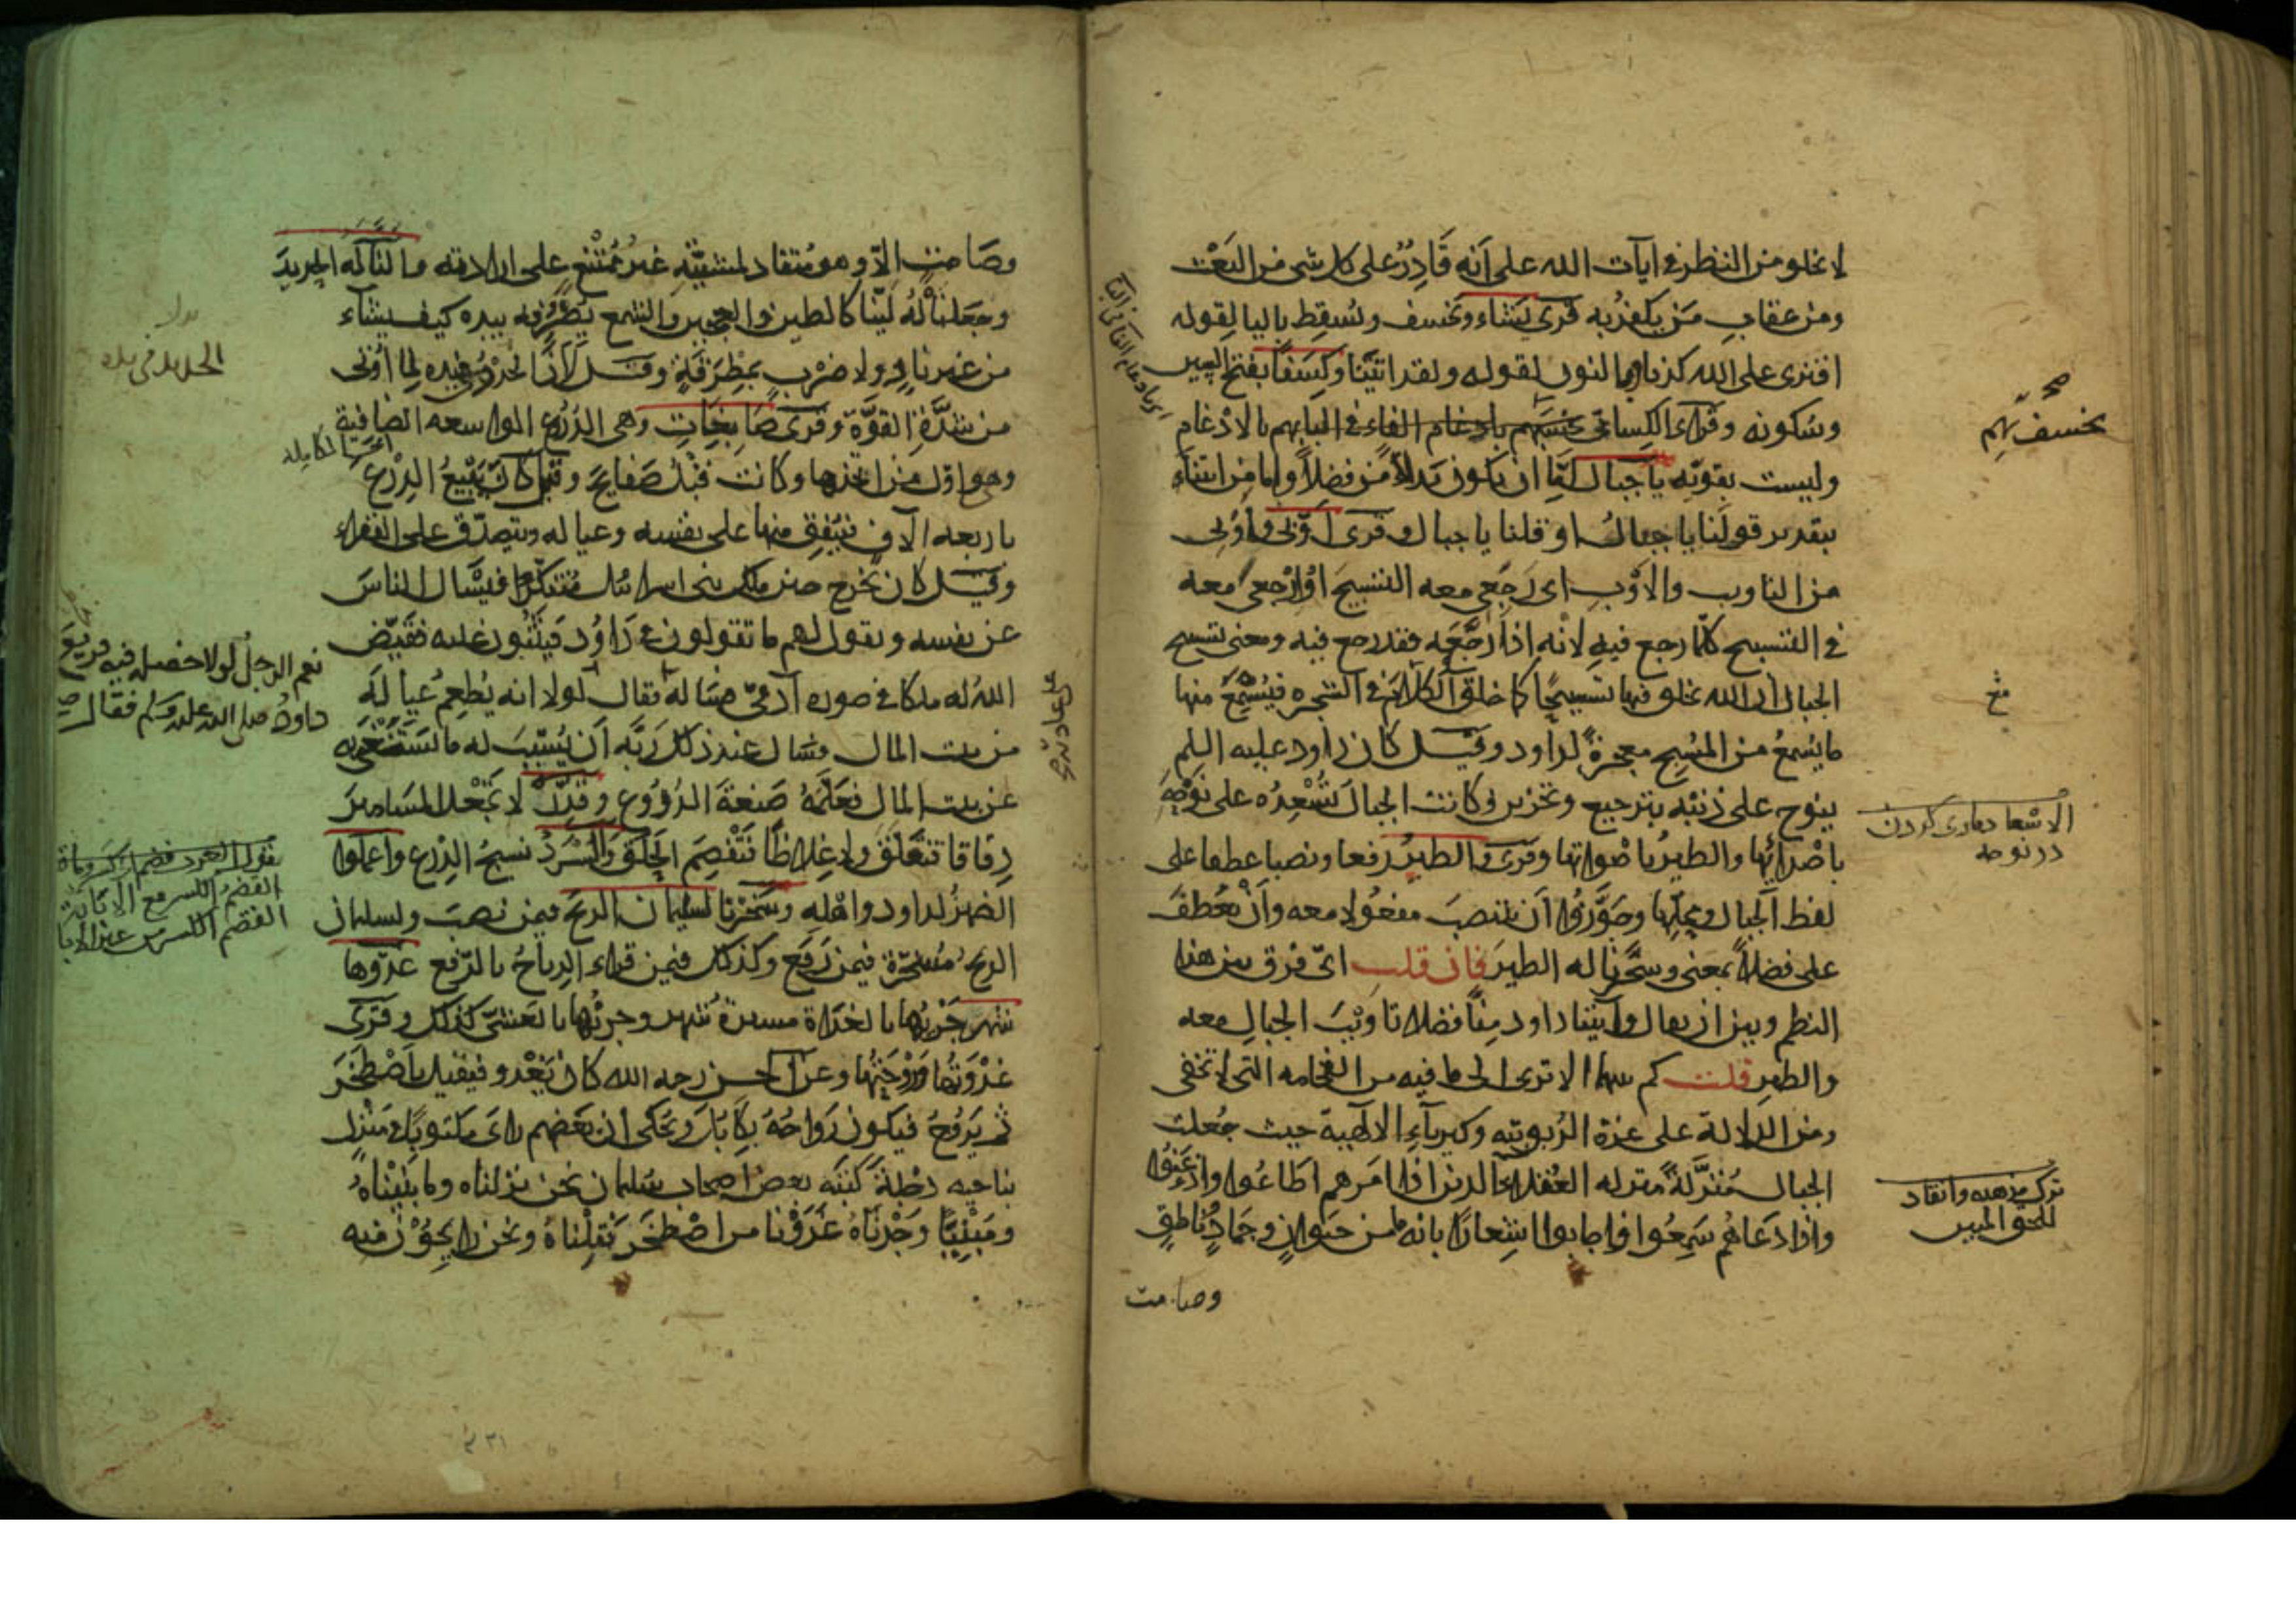 لا يخلو من النظر في ايآت الله على أنه قَادِرٌ على كل شى من البَعْث
ومن عقاب مَن يكفرُ به قرى يَشاء ويخسف ويُسقِط باليا لقوله
افترى على الله كذبا وبالنون لقوله ولقد اتيْنا وكِسَفًا بفتح السين
وسُكونه وقرأ الكسائى يخسفْ بهم بادغام الفاء فى البا
وليست بقويّه يا جبال إمّا ان يكون بَدلاً من فضلاً وإما من اتينا
بتقدير قولَنا يا جبالُ او قلنا يا جبال وقرى أوّبى وأُوبى
من التاويب والاَوْب اى رَجِّعى معه التسبيحَ او ارْجعى معه
فى التسبيح كلّما رجع فيهِ لانّه اذا رَجَّعَه فقد رجع فيه ومعنى تسبيح
الجبال أن الله يخلق فيها تسبيحًا كما خلق الكلامَ فى الشجره فيُسْمَعُ منها
ما يُسمعُ من المُسَبِّح معجزةً لداود وقيل كان داود عليه السلم
ينوح على ذنبْه بترجيع وتحزين وكانت الجبالُ تُسْعِدُه على نَوْحِهِ
باصْدائِها والطيرُ باصْواتها وقرى والطيرُ رفعا ونصبا عطفا على
لفظ الجبال ومحلِّها وجَوَّزوا أن ينتصبَ مفعُولا معه وأنْ يُعْطفَ
على فضلاً بمعنى وسخّرنا له الطيرَ فان قلت اىّ فرق بين هذا
النظم وبين ان يقال وآتينا داود مِنّا فضلا تاويْبَ الجبالِ معه
والطيرِ قلت كم بينهما الا ترى الى ما فيه من الفخامه التى لا تخفى
ومن الدلالة على عزة الرُبوبيّه وكبرياءِ الالهية حيث جُعلت
الجبالُ مُنَزَّلةً منزله العُقلاء الذين اذا امَرهم أطَاعُوا وأذعَنُوا
واذا دَعاهُم سَمِعُوا واجابوا اشِعارًا بانه ما من حيَوانٍ وجمَادٍ وناطقٍ
وصامت
يخسف بهم
صح
الاسعاد يارى كردن
در نوحه
للحق المبين
وصَامتٍ الاّ وهو مُنقاد لمشيّتِه غيرُ مُمْتَنِع على ارادته والنّا لَهُ الحديدَ
وجَعلناهُ له لَيّنا كالطين والعجين والشمع يُصَرِّفه بيده كيف يشاء
من غير نارٍ ولا ضَرْب بمِطْرَقَةٍ وقيل لاَنَ الحديدُ فى يده لِما اُوتى
من شدَّةِ القوَّة وقرى صَابِغَاتٍ وهى الدُرُوع الواسعه الضافية
وهو اوّل من اتخذها وكانت قبْلُ صَفايحَ وقيل كان يَبيْعُ الدِرْعَ
باربعه آلاف فيُنفِق منها على نفسه وعياله ويتصدّق على الفقراء
وقيل كان يَخرج حين ملَك بنى اسرائيل مُتَنكّرًا فيسْال الناسَ
عن نفسه ويقول لهم ما تقولون فى دَاوُد فيُثْنُون عليه فقيّض
اللهُ له ملكا فى صوره آدمىّ فسَاله فقال لولا انه يُطعِم عيالَه
من بيت المال فسَال عند ذلك رَبَّه أن يُسَبِّبَ له ما يستَغنى به
عن بيت المال فعَلّمَهُ صَنعةَ الدُرُوع وقَدِّرْ لا تجْعل المسَاميرَ
دِقَاقا فتَقلَق ولا غِلاظًا فتَفْصِمَ الحِلَقَ والسَّرْدُ نسيجُ الدِرْع واعملوا
الضميرُ لداود واهْلِه وسَخّرْنا لسليمانَ الريحَ فيمن نصبَ ولسليمان
الريحُ مُسَخّرة فيمن رَفَعَ وكذلك فيمن قراء الرِياحُ بالرّفع غدوّها
شهر جَرْيُها بالغَداة مسيرةُ شهر وجريُها بالعَشىّ كذلك وقُرى
غدْوَتُها ورَوْحَتُها وعن الحسن رحمه الله كان يَغْدو فيقيل باصْطَخْرَ
ثم يَرُوحُ فيكون رَواحُهُ بكابُلَ ويُحكى ان بَعْضهم رأى مكتوبًا فى مَنْزلٍ
بناحيه دِجْلةَ كتَبَه بعض اصحاب سُليمان نحن نزلناه وما بنيْناهُ
ومَبْنِيًّا وَجَدْناهُ غدَوْنا من اصْطَخْرَ فقِلْناهُ ونحن رايحُوْن منه
نعم الرجلُ لولا خصلة فيه فريعَ
داودُ صلى الله عليه وسلم فقال
الفصم الكسر مع الابانة